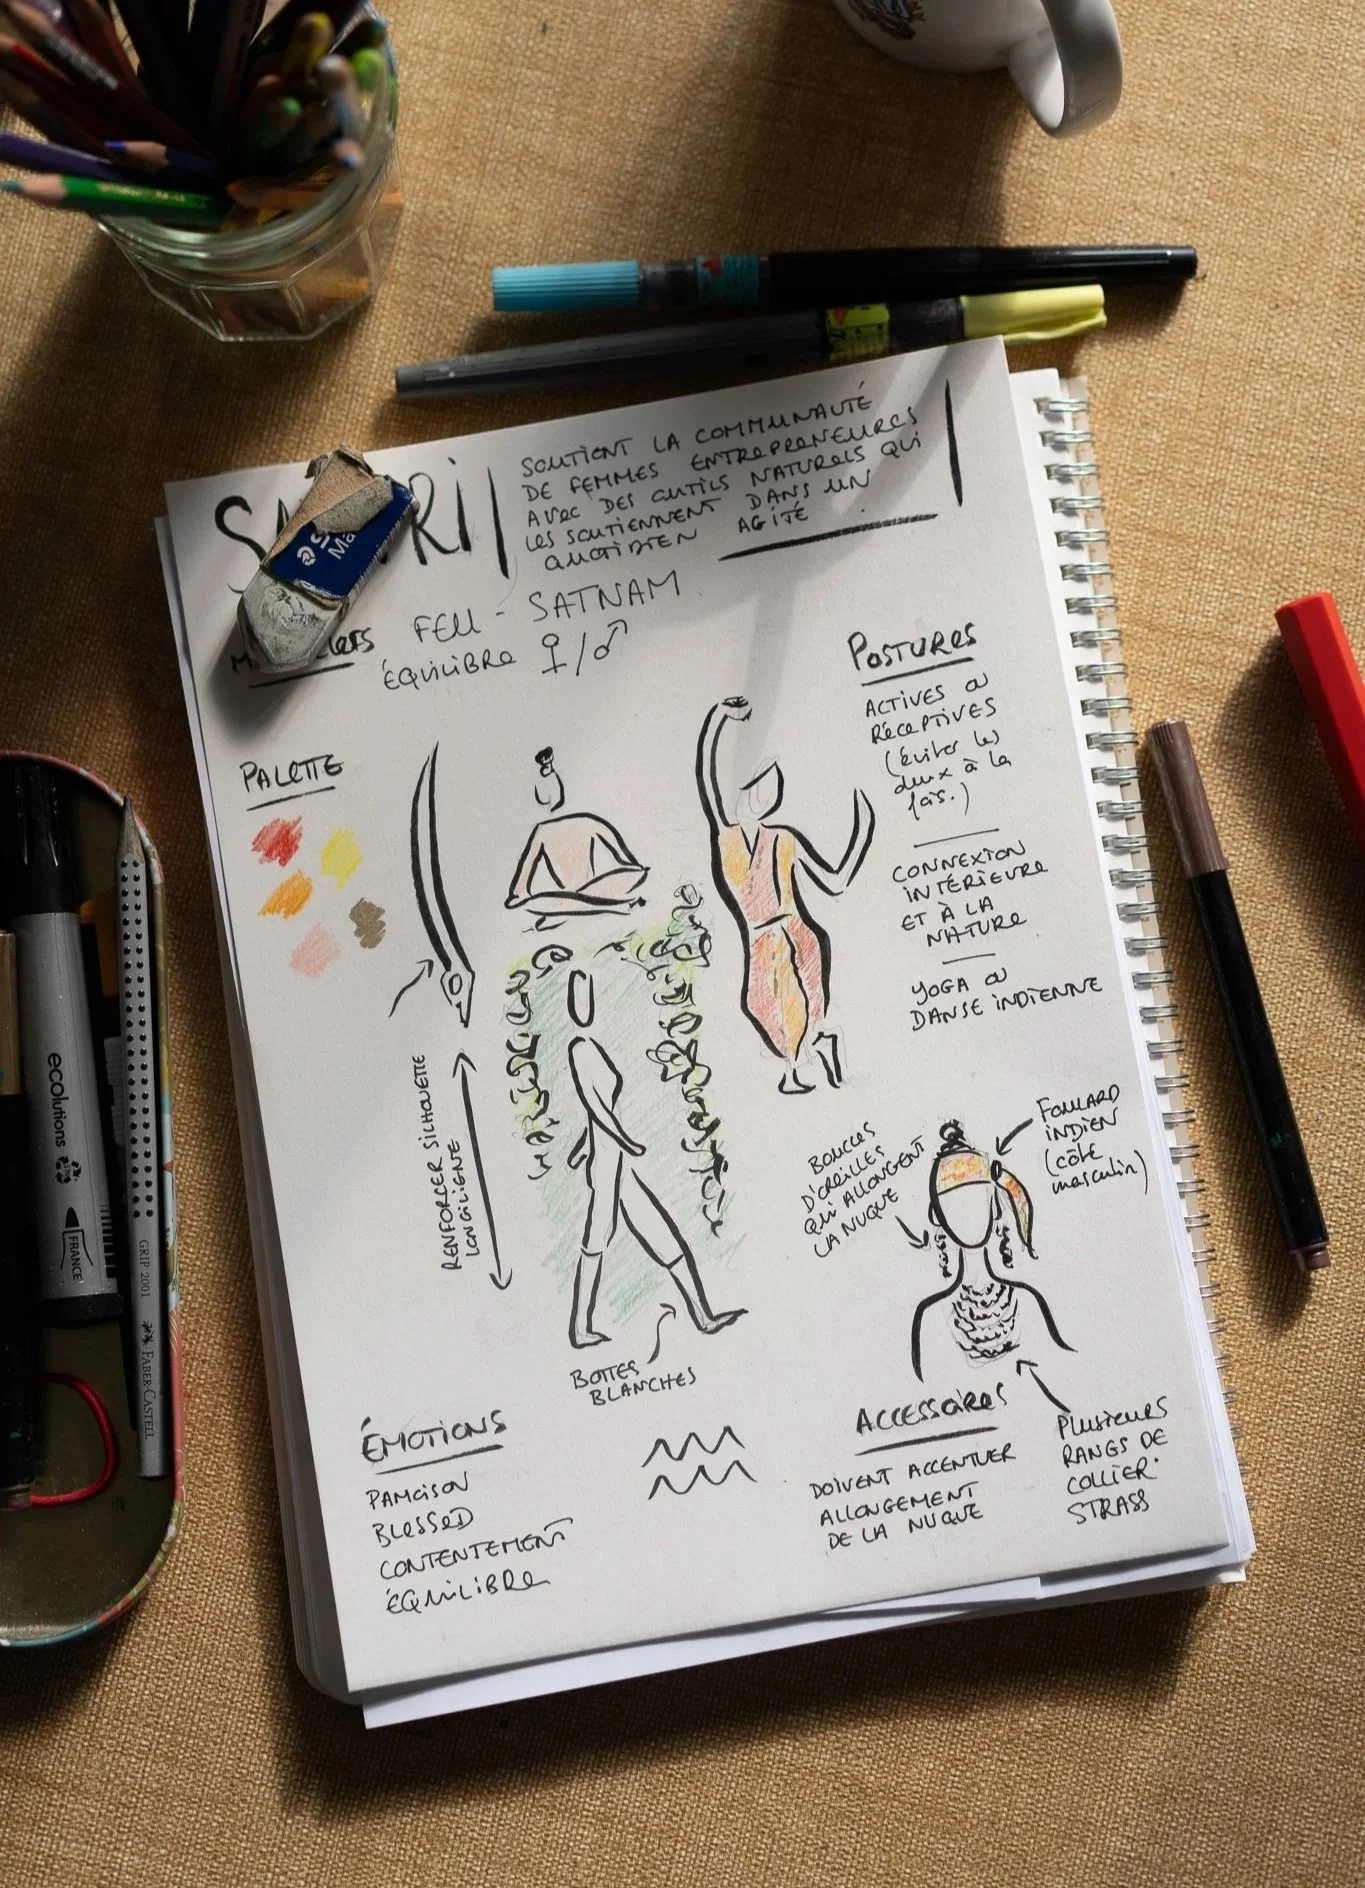 SOUTIENT LA COMMUNAUTÉ
DE FEMMES ENTREPRENEURES
AVEC DES OUTILS NATURELS QUI
LES SOUTIENNENT DANS UN
QUOTIDIEN AGITÉ
FEU - SATNAM
ÉQUILIBRE ♀/♂
PALETTE
POSTURES
ACTIVES OU
RÉCEPTIVES
(éviter les
deux à la
fois.)
CONNEXION
INTÉRIEURE
ET À LA
NATURE
YOGA OU
DANSE INDIENNE
RENFORCER SILHOUETTE
LONGILIGNE
BOTTES
BLANCHES
BOUCLES
D'OREILLES
QUI ALLONGENT
LA NUQUE
FOULARD
INDIEN
(côté
masculin)
ÉMOTIONS
PAMOISON
BLESSED
CONTENTEMENT
ÉQUILIBRE
ACCESSOIRES
DOIVENT ACCENTUER
ALLONGEMENT
DE LA NUQUE
PLUSIEURS
RANGS DE
COLLIER
STRASS
ecolutions
FRANCE
GRIP 2001
FABER-CASTELL